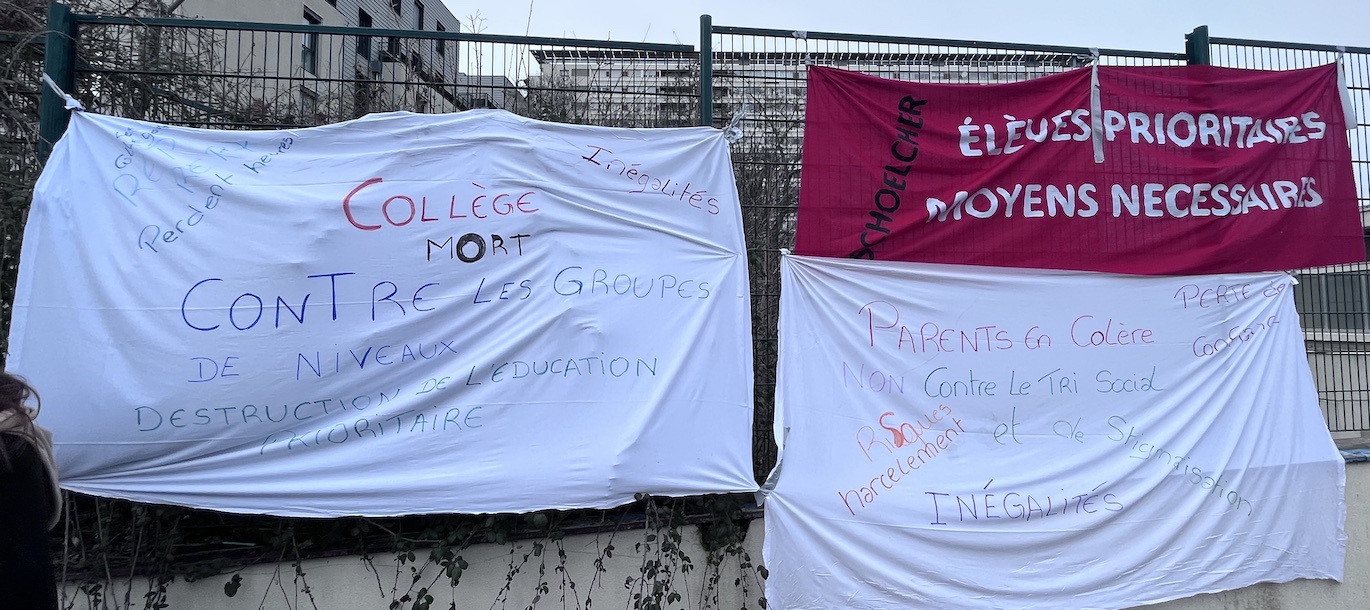 Perdent heures
Inégalités
COLLÈGE
MORT
CONTRE LES GROUPES
DE NIVEAUX
DESTRUCTION DE L'ÉDUCATION
PRIORITAIRE
SCHOELCHER
ÉLÈVES PRIORITAIRES
MOYENS NECESSAIRES
PERTE de
PARENTS En Colère
NON Contre Le TRi Social
et de Stigmatisation
RiSques
harcelement
INÉGALITÉS